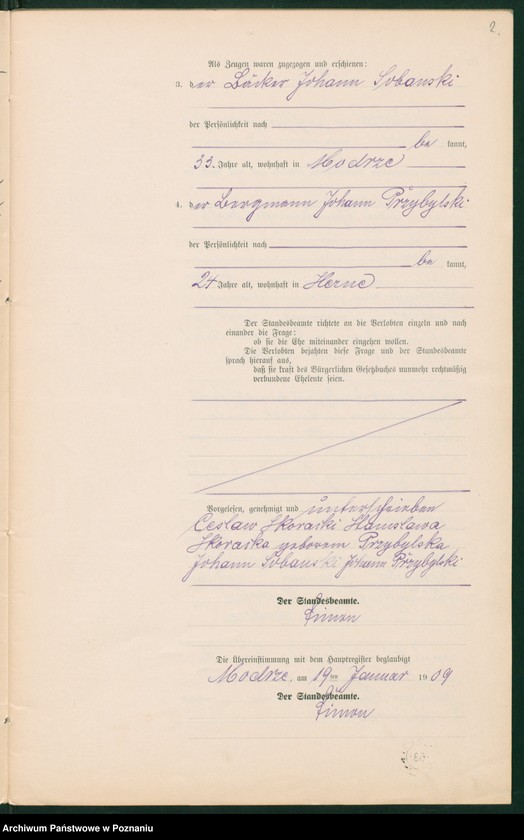 2.
Als Zeugen waren zugezogen und erschienen:
3. der Bäcker Johann Sobanski
der Persönlichkeit nach
be kannt,
33 Jahre alt, wohnhaft in Modrze
4. der Bergmann Johann Przybylski
der Persönlichkeit nach
be kannt,
24 Jahre alt, wohnhaft in Herne
Der Standesbeamte richtete an die Verlobten einzeln und nach
einander die Frage:
ob sie die Ehe miteinander eingehen wollen.
Die Verlobten bejahten diese Frage und der Standesbeamte
sprach hierauf aus,
daß sie kraft des Bürgerlichen Gesetzbuches nunmehr rechtmäßig
verbundene Eheleute seien.
Vorgelesen, genehmigt und unterschrieben
Ceslaw Skoraski Stanislawa
Skoraska geborene Przybylska
Johann Sobanski Johann Przybylski
Der Standesbeamte.
Simon
Die Übereinstimmung mit dem Hauptregister beglaubigt
Modrze, am 19ten Januar 1909
Der Standesbeamte.
Simon
Archiwum Państwowe w Poznaniu